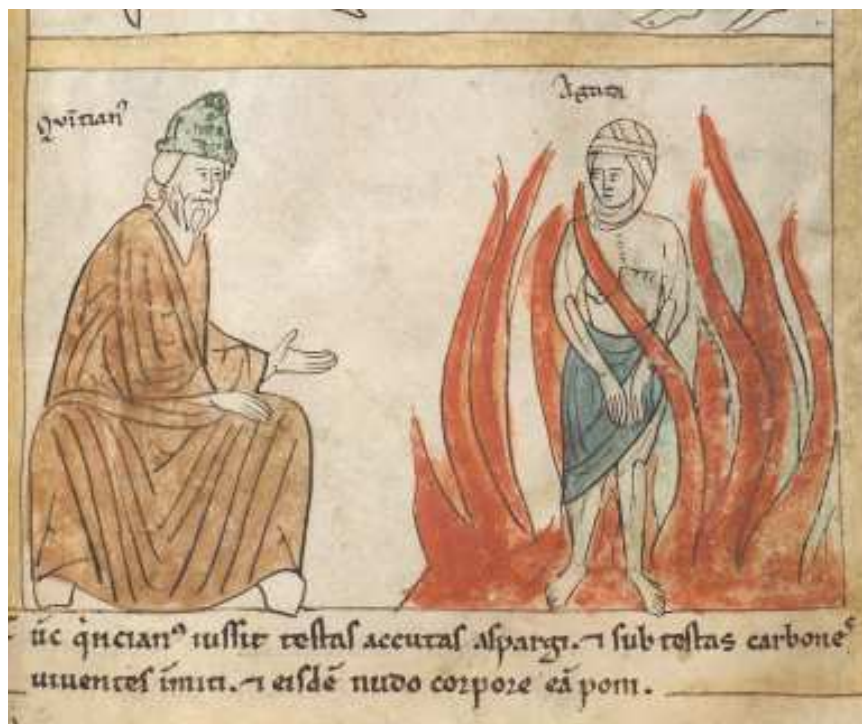 qvītianꝰ
Agata
ūc q̇ncianꝰ iussit testas accutas aspargi. ⁊ sub testas carbones
uiuentes īmiti. ⁊ eisdē nudo corpore eā poni.